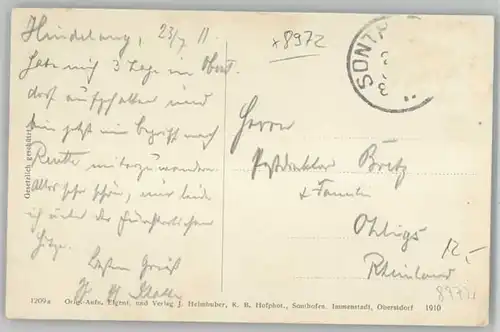 Hindelang, 23/7 11.
Habe mich 3 Tage in Oberst
dorf aufgehalten und
bin jetzt im Begriff nach
Reutte weiterzuwandern.
Alles sehr schön, nur leide
ich unter der fürchterlichen
Hitze.
Besten Gruß
x8972
SONTH
Herrn
Postdirektor Bretz
& Familie
Ohligs
Rheinland
12,-
Gesetzlich geschützt.
1209a Orig.-Aufn. Eigent. und Verlag J. Heimhuber, K. B. Hofphot., Sonthofen, Immenstadt, Oberstdorf 1910